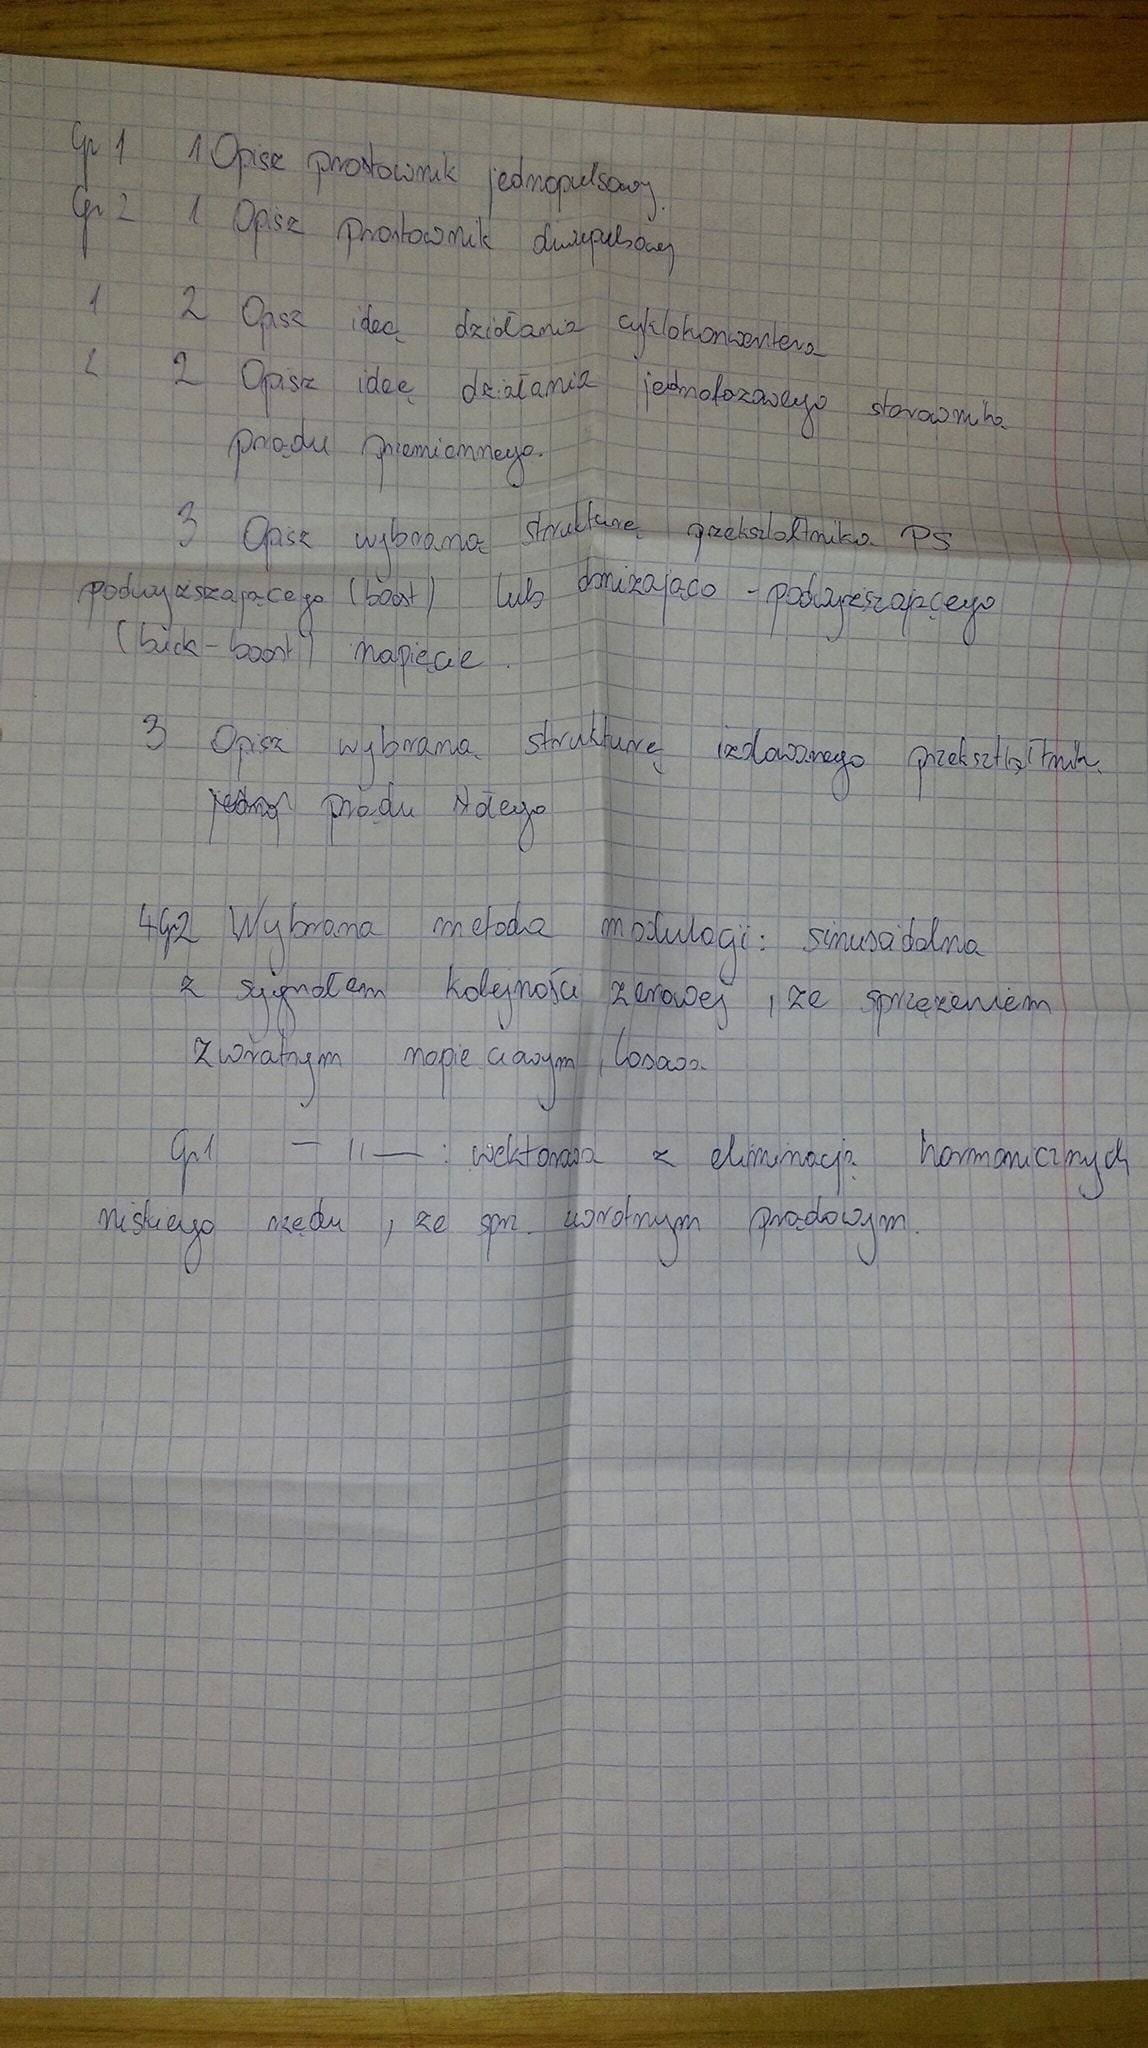 Gr 1 1 Opisz prostownik jednopulsowy.
Gr 2 1 Opisz prostownik dwupulsowy
1 2 Opisz ideę działania cyklokonwertera
2 2 Opisz ideę działania jednofazowego sterownika
prądu przemiennego.
3 Opisz wybraną strukturę przekształtnika PS
podwyższającego (boost) lub obniżająco - podwyższającego
(buck - boost) napięcie.
3 Opisz wybraną strukturę izolowanego przekształtnika
prądu stałego
4 Gr2 Wybrana metoda modulacji: sinusoidalna
z sygnałem kolejności zerowej, ze sprzężeniem
zwrotnym napięciowym, losowa.
Gr1 — 11 — : wektorowa z eliminacją harmonicznych
niskiego rzędu, ze spr. zwrotnym prądowym.